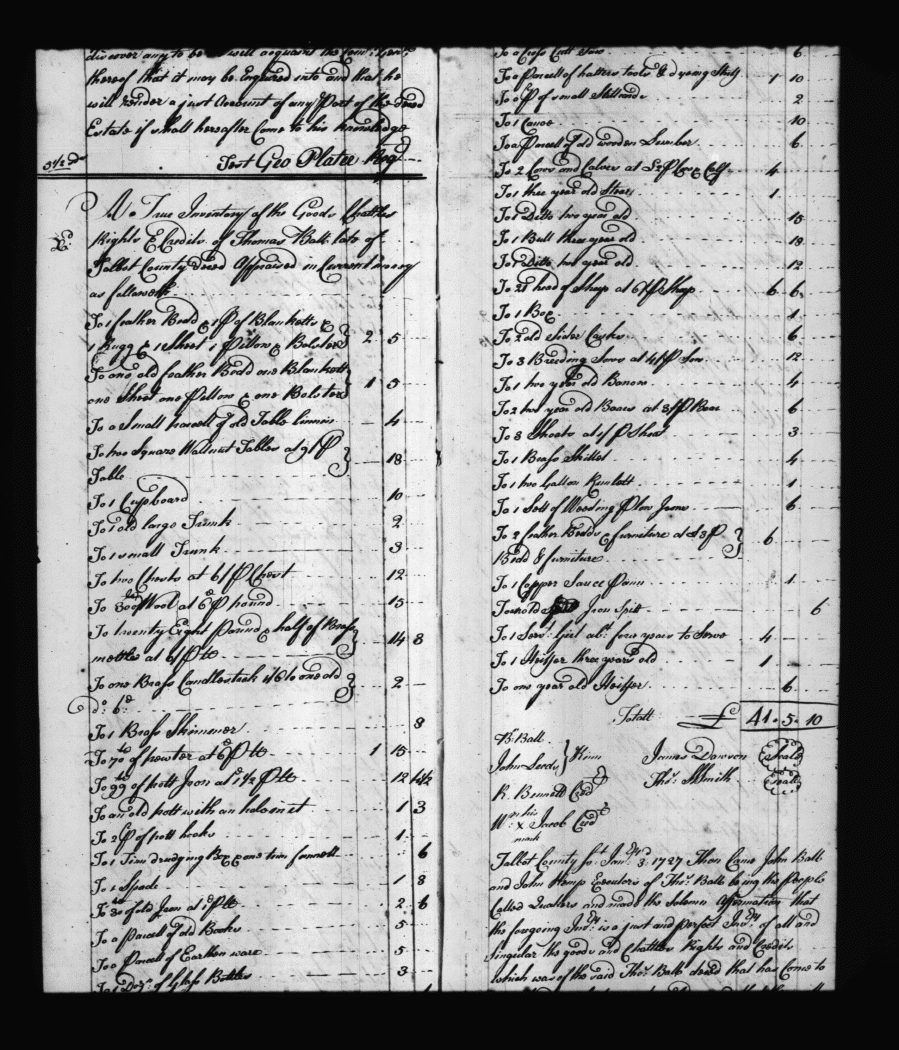 discover any to be will acquaint the Com: Gen:
thereof that it may be Enquired into and that he
will render a just Account of any Part of the decd
Estate if shall hereafter Come to his knowledge
Test Geo Plater Regr
A True Inventory of the Goods Chattles
Rights & Credits of Thomas Ball late of
Talbot County Deced Appraised in Current money
as followeth
To 1 feather Bedd & 1 P of Blanketts &
1 Rugg & 1 Sheet 1 Pillow & Bolster 2 5
To one old feather Bedd one Blankett
one Sheet one Pillow & one Bolster 1 5
To a Small parcell of old Table linnin 4
To two Square Wallnut Tables at 9/ P
Table 18
To 1 Cupboard 10
To 1 old large Trunk 2
To 1 small Trunk 3
To two Chests at 6/ P Chest 12
To 30 lb Wool at 6d P pound 15
To twenty Eight Pound & half of Brass
mettle at 6d P lb 14 3
To one Brass Candlestick 1/6 to one old
do: 6d 2
To 1 Brass Skimmer 8
To 70 lb of pewter at 6d P lb 1 15
To 99 lb of pott Iron at 1 1/2 P lb 12 4 1/2
To an old pott with an hole in it 1 3
To 2 P of pott hooks 1
To 1 Tinn drudging Box & one tinn funnell 6
To 1 Spade 1 8
To 30 lb of old Iron at 1d P lb 2 6
To a parcell of old Books 5
To a Parcell of Earthen ware 5
To 1 Doz: of Glass Bottles 3
To a Cross Cutt Saw 6
To a Parcell of hatters tools & dyeing Stuff 1 10
To a P of small Stillards 2
To 1 Canoe 10
To a Parcell of old wooden Lumber 6
To 2 Cows and Calves at £2 P Cow & Calf 4
To 1 three year old Steer 1
To 1 Ditto two year old 15
To 1 Bull three year old 19
To 1 Ditto two year old 12
To 21 head of Sheep at 6/ P Sheep 6 6
To 1 Box 1
To 2 old Sider Casks 6
To 3 Breeding Sows at 4/ P Sow 12
To 1 two year old Barrow 4
To 2 two year old Boars at 3/ P Boar 6
To 3 Shoats at 1/ P Shoat 3
To 1 Brass Skillet 4
To 1 two Gallon Runlett 1
To 1 Sett of Weeding Plow Irons 6
To 2 feather Bedds & furniture at £3 P
Bedd & furniture 6
To 1 Copper Sauce Pann 1
To an old Iron Spitt 6
To 1 Servt: Girl abt: four years to Serve 4
To 1 Heiffer three years old 1
To one year old Heiffer 6
Totall £ 41. 5. 10
Br: Ball
John Leeds } Kinn
James Dawson (Seal)
Thos. Smith (Seal)
R. Bennett Credr
Wm his x Jacob Credr
mark
Talbot County ss: Janry: 3d: 1727 Then Came John Ball
and John Kemp Executors of Thos. Ball being the People
Called Quakers and made the Solemn Affirmation that
the foregoing Invry: is a just and perfect Invry: of all and
Singular the goods and Chattles Rights and Credits
which was of the said Thos. Ball decd that has Come to